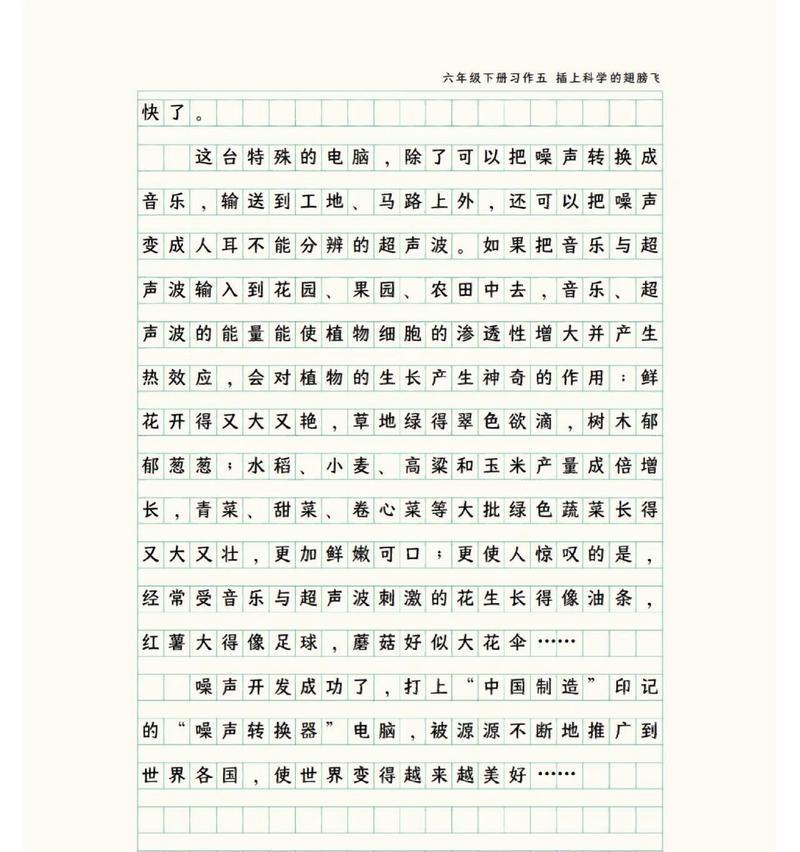 六年级下册习作五 插上科学的翅膀飞
快了。
这台特殊的电脑，除了可以把噪声转换成
音乐，输送到工地、马路上外，还可以把噪声
变成人耳不能分辨的超声波。如果把音乐与超
声波输入到花园、果园、农田中去，音乐、超
声波的能量能使植物细胞的渗透性增大并产生
热效应，会对植物的生长产生神奇的作用：鲜
花开得又大又艳，草地绿得翠色欲滴，树木郁
郁葱葱；水稻、小麦、高粱和玉米产量成倍增
长，青菜、甜菜、卷心菜等大批绿色蔬菜长得
又大又壮，更加鲜嫩可口；更使人惊叹的是，
经常受音乐与超声波刺激的花生长得像油条，
红薯大得像足球，蘑菇好似大花伞……
噪声开发成功了，打上“中国制造”印记
的“噪声转换器”电脑，被源源不断地推广到
世界各国，使世界变得越来越美好……